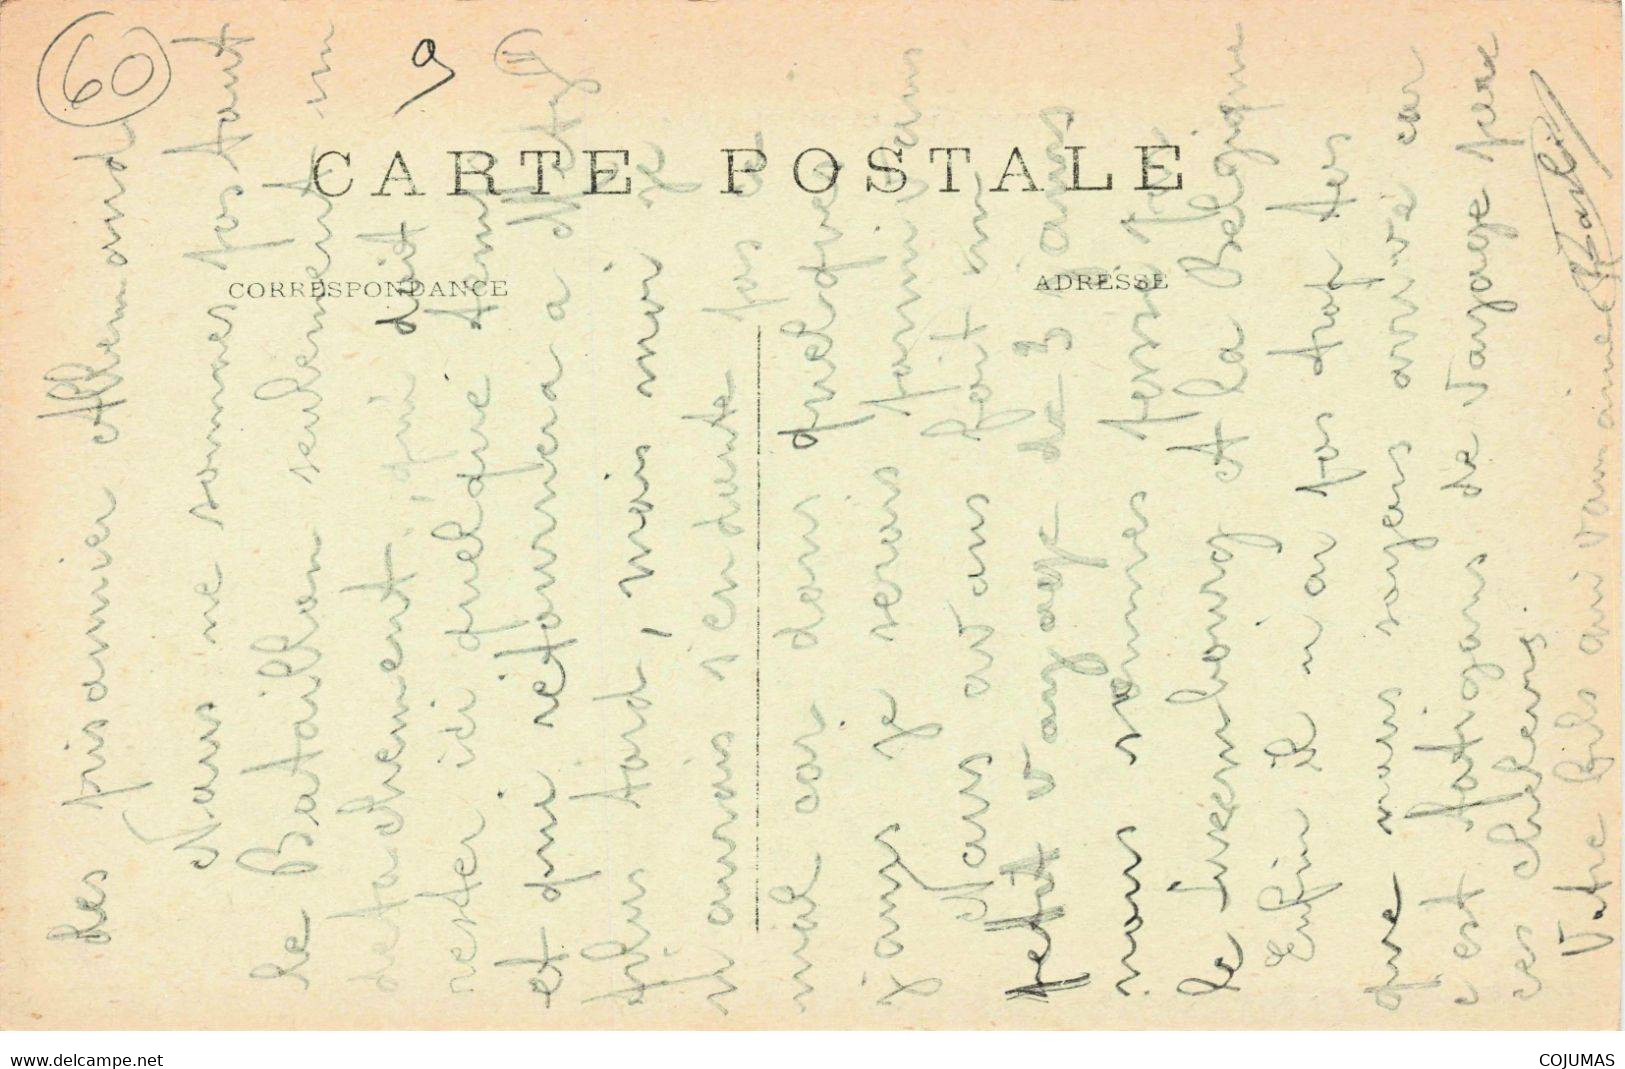 60
9
11
CARTE POSTALE
CORRESPONDANCE
ADRESSE
les prisonnier Allemands
Nous ne sommes pas tout
le Bataillon seulement un
detachement, qui doit
rester ici quelque temps
et qui retournera a Metz
plus tard, mais moi je
n aurais s en doute pas le
mal car dans quelques
jours je serais parmi vous
Nous avons fait un
petit voyage de 3 jours
nous sommes passe par
le Luxembourg et la Belgique
Enfin il n a pas trop tos
que nous soyons arrivé car
c est fatigans de voyage par
ces chaleurs.
Votre fils qui vous aime
www.delcampe.net
COJUMAS